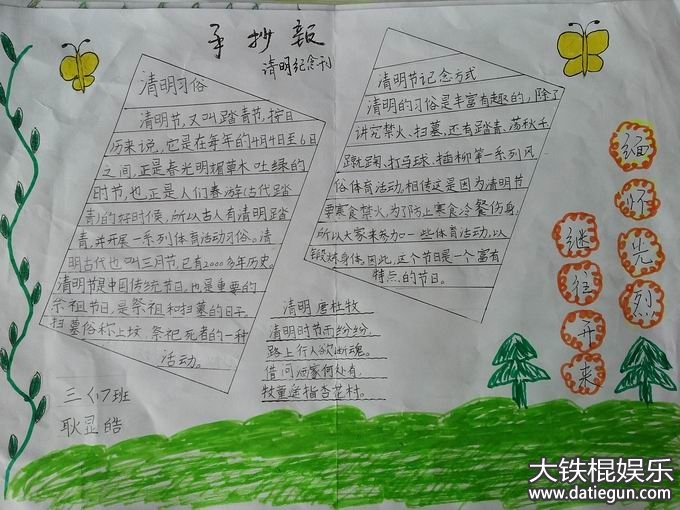 手抄报
清明纪念刊
清明习俗
清明节,又叫踏青节,按日
历来说,它是在每年的4月4日至6日
之间,正是春光明媚草木吐绿的
时节,也正是人们春游(古代踏
青)的好时候,所以古人有清明踏
青,并开展一系列体育活动习俗。清
明古代也叫三月节,已有2000多年历史。
清明节是中国传统节日,也是重要的
祭祖节日,是祭祖和扫墓的日子。
扫墓俗称上坟,祭祀死者的一种
活动。
三(1)班
耿显皓
清明 唐杜牧
清明时节雨纷纷,
路上行人欲断魂。
借问酒家何处有,
牧童遥指杏花村。
清明节记念方式
清明的习俗是丰富有趣的,除了
讲究禁火、扫墓,还有踏青、荡秋千、
蹴踘、打马球、插柳第一系列风
俗体育活动。相传这是因为清明节
要寒食禁火,为了防止寒食冷餐伤身,
所以大家来参加一些体育活动,以
锻炼身体。因此,这个节日是一个富有
特点的节日。
缅怀光烈
继往开来
大铁棍娱乐
www.datiegun.com